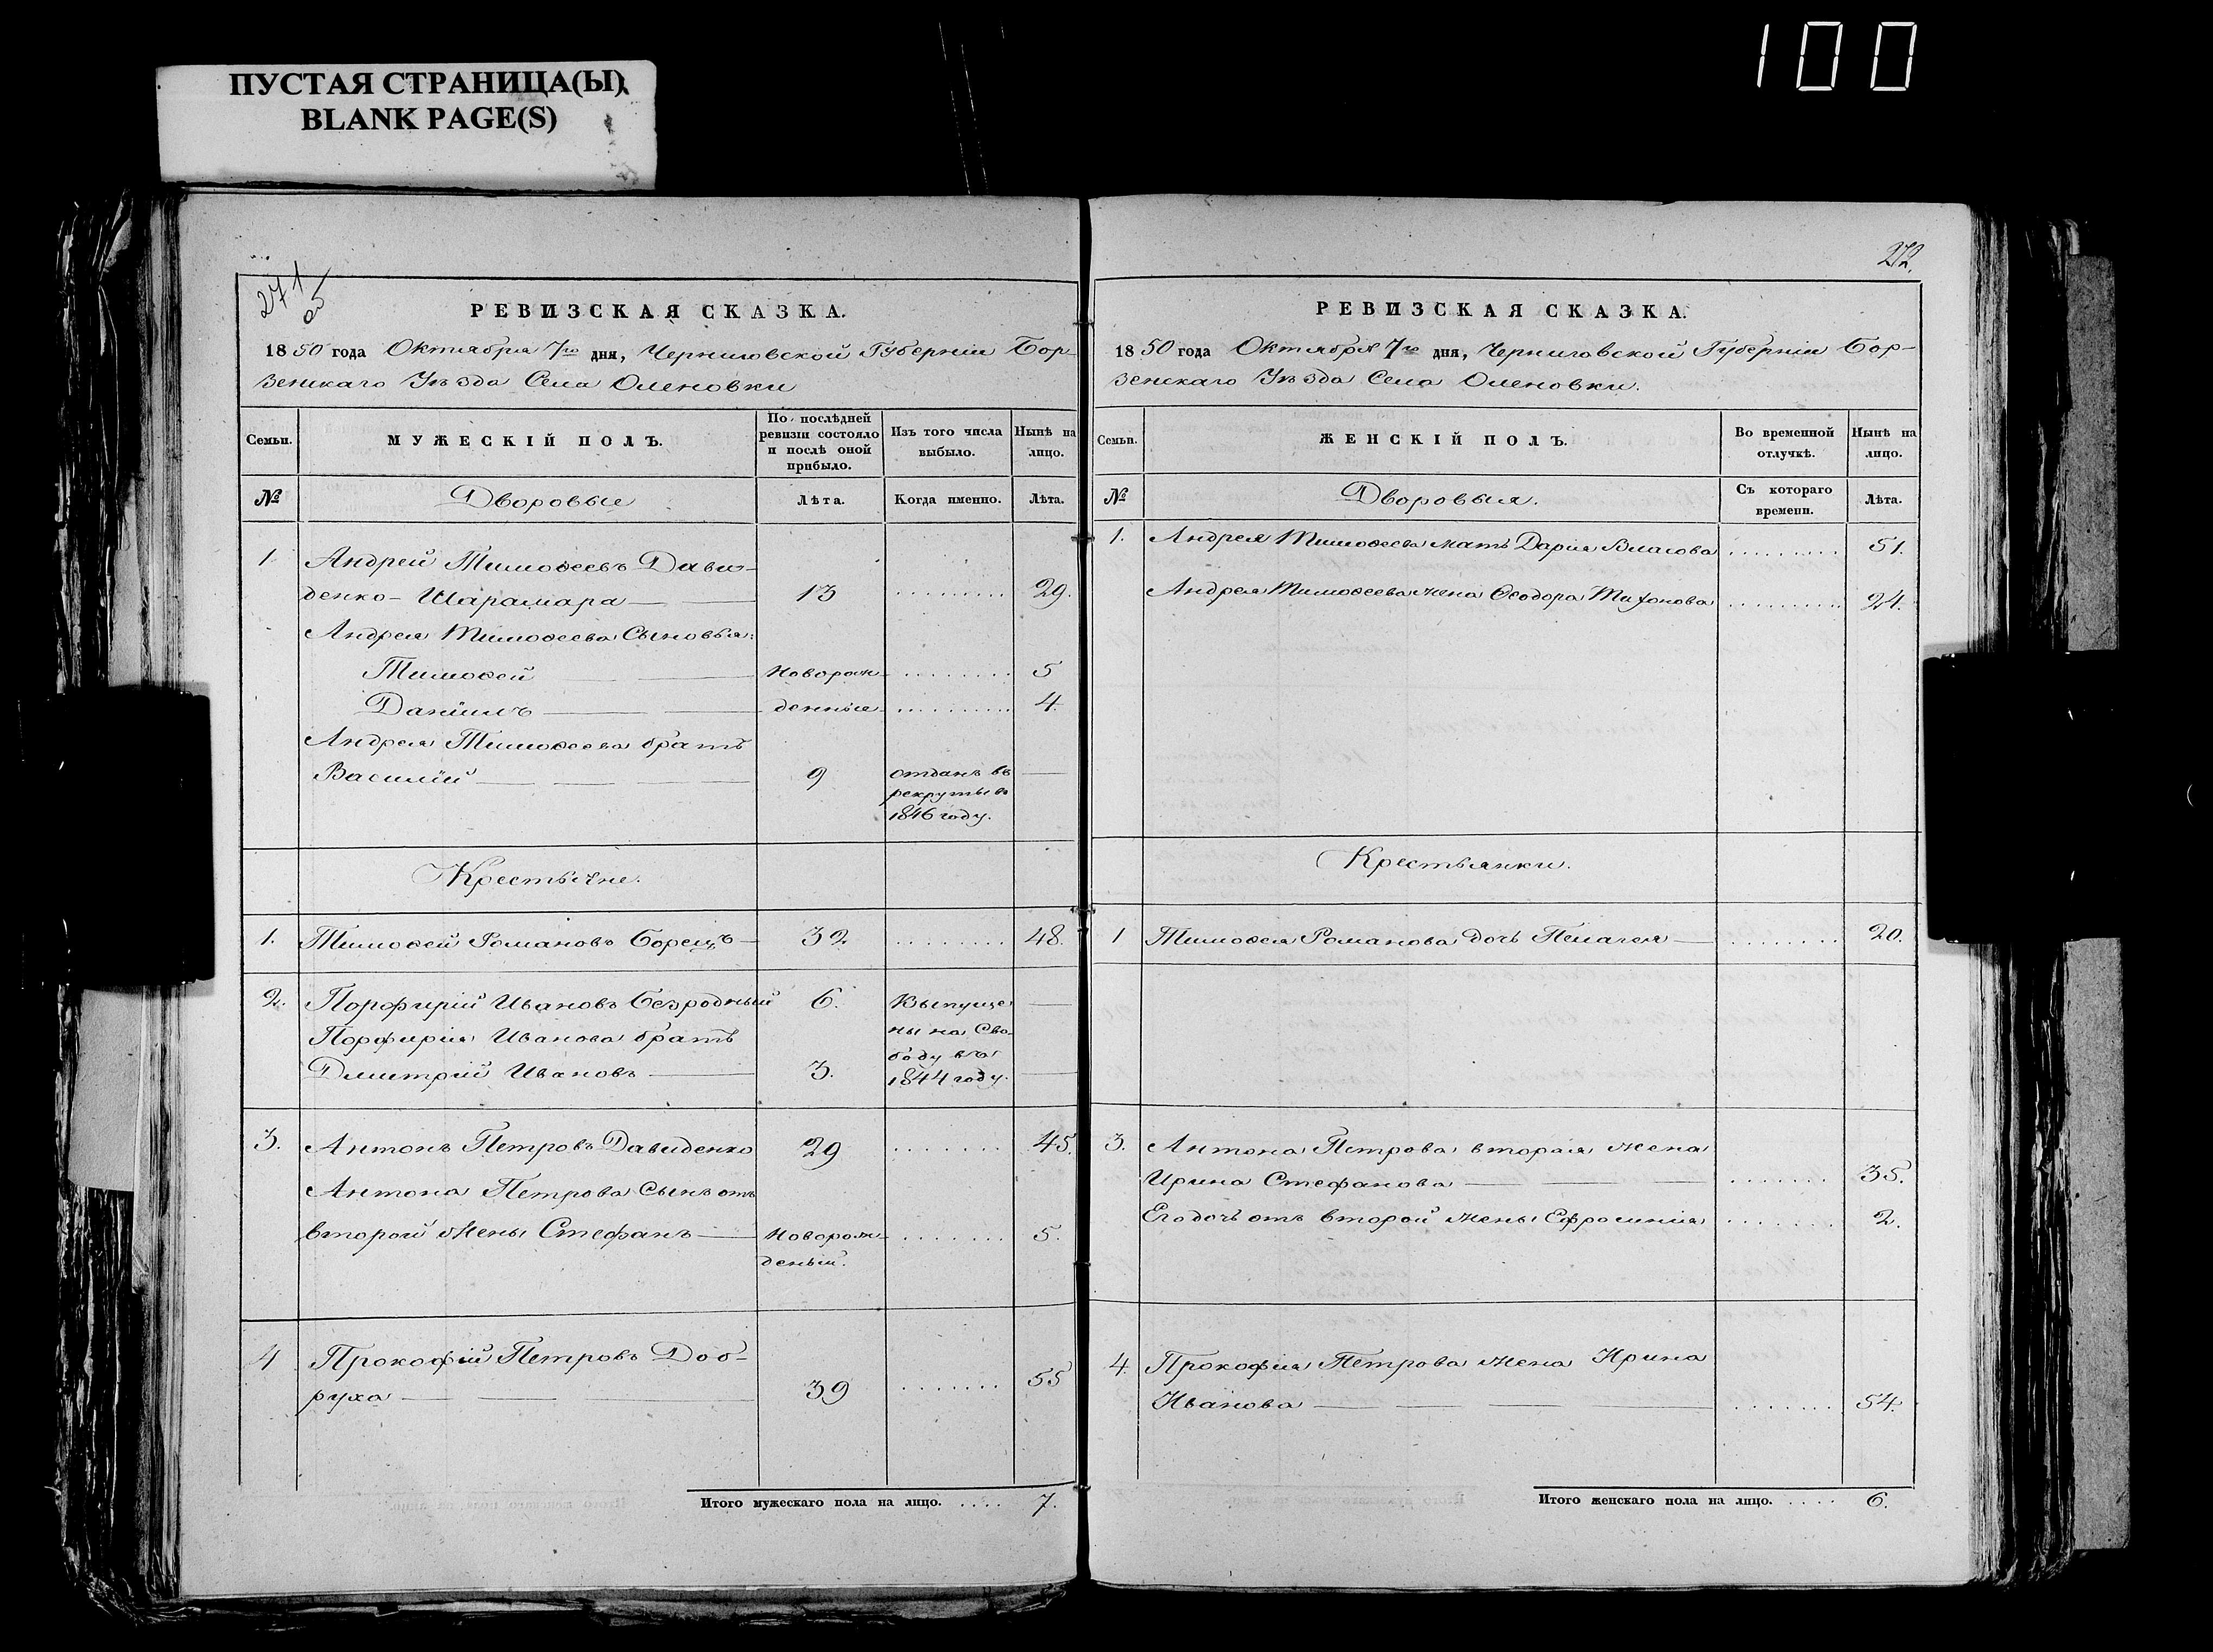 100
ПУСТАЯ СТРАНИЦА(Ы)
BLANK PAGE(S)
271
об
РЕВИЗСКАЯ СКАЗКА.
1850 года Октября 7го дня, Черниговской Губерніи Бор-
зенскаго Уѣзда Села Оленовки
Семьи.
МУЖЕСКІЙ ПОЛЪ.
По послѣдней ревизіи состояло и послѣ оной прибыло.
Изъ того числа выбыло.
Нынѣ на лицо.
№
Дворовые
Лѣта.
Когда именно.
Лѣта.
1 Андрей Тимоѳеевъ Дави-
денко-Шарамара 13 29.
Андрея Тимоѳеева Сыновья:
Тимоѳей Новорож- 5
Даніилъ денныя 4.
Андрея Тимоѳеева братъ
Василій 9 отданъ въ
рекруты въ
1846 году.
Крестьяне.
1. Тимоѳей Романовъ Борецъ 32 48.
2. Порфирій Ивановъ Безродный 6. Выпуще-
Порфирія Иванова братъ ны на Сво-
боду въ
Дмитрій Ивановъ 3. 1844 году.
3. Антонъ Петровъ Давиденко 29 45.
Антона Петрова Сынъ отъ
второй жены Стефанъ Новорож- 5.
деный.
4 Прокофій Петровъ Доб-
руха 39 55
Итого мужескаго пола на лицо. .... 7.
272.
РЕВИЗСКАЯ СКАЗКА.
1850 года Октября 7го дня, Черниговской Губерніи Бор-
зенскаго Уѣзда Села Оленовки.
Семьи.
ЖЕНСКІЙ ПОЛЪ.
Во временной отлучкѣ.
Нынѣ на лицо.
№
Дворовыя.
Съ котораго времени.
Лѣта.
1. Андрея Тимоѳеева мать Дарія Власова 51.
Андрея Тимоѳеева жена Ѳеодора Тихонова 24.
Крестьянки.
1 Тимоѳея Романова дочь Пелагея 20.
3. Антона Петрова вторая жена
Ирина Стефанова 35.
Его дочь отъ второй жены Ефросинія 2.
4. Прокофія Петрова жена Ирина
Иванова 54.
Итого женскаго пола на лицо. .... 6.